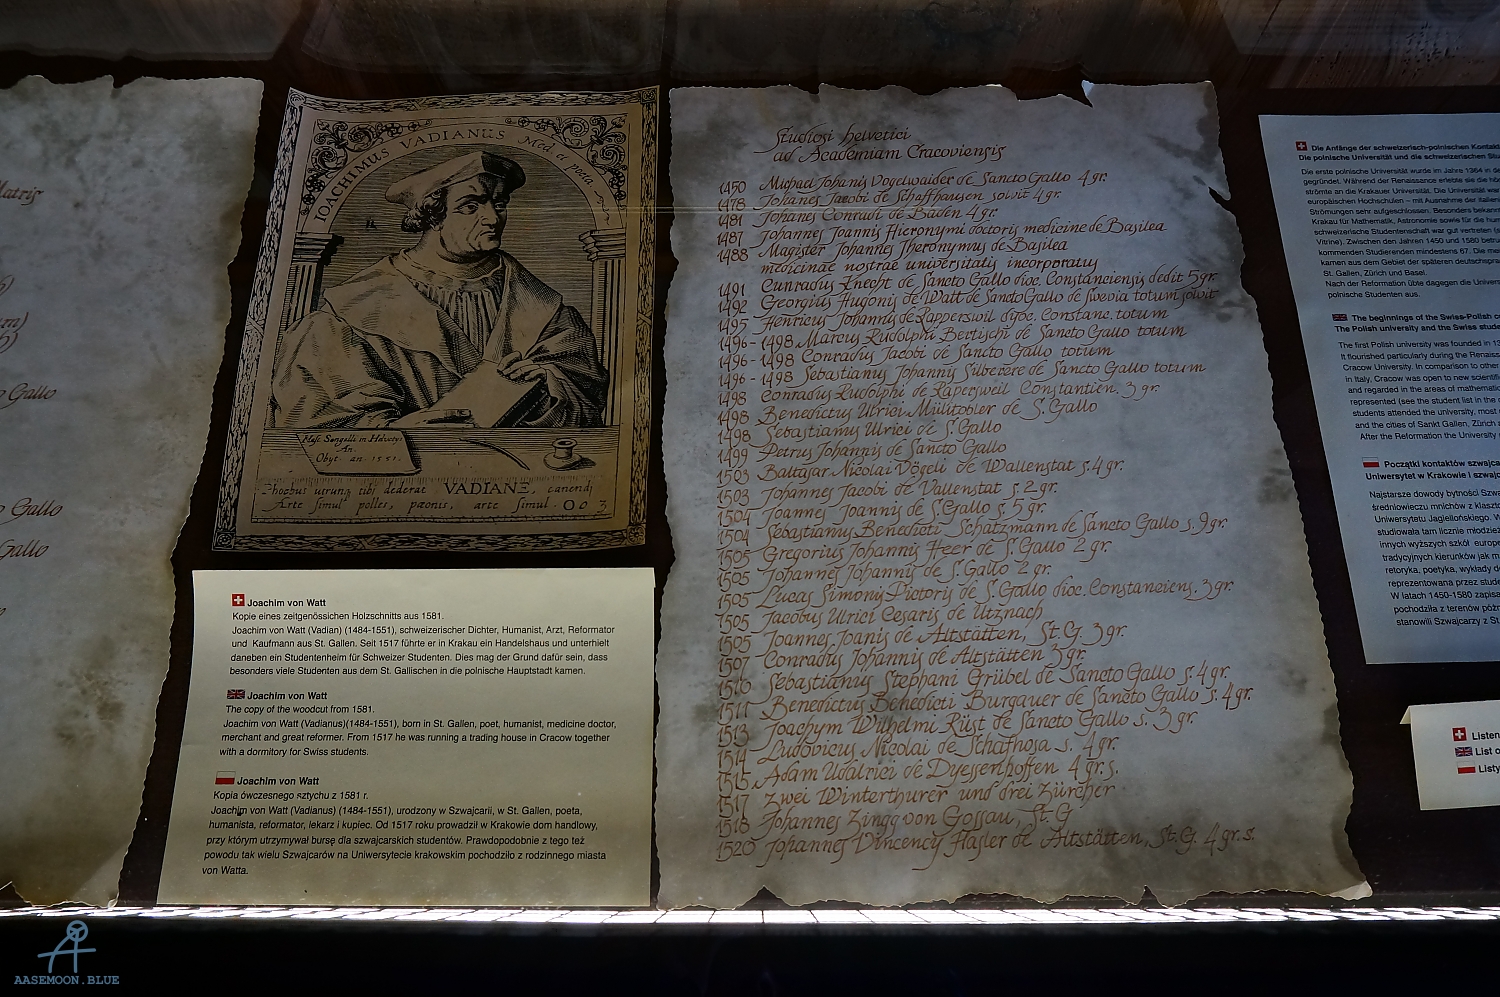 Matris
o Gallo
o Gallo
Gallo
IOACHIMUS VADIANUS Med et poeta
Nasc. Sangalli in Helvetys
An.
Obyt. an. 1551.
Phoebus utrunq tibi dederat VADIANE, canendi
Arte simul polles, pæonis, arte simul.
Joachim von Watt
Kopie eines zeitgenössichen Holzschnitts aus 1581.
Joachim von Watt (Vadian) (1484-1551), schweizerischer Dichter, Humanist, Arzt, Reformator
und Kaufmann aus St. Gallen. Seit 1517 führte er in Krakau ein Handelshaus und unterhielt
daneben ein Studentenheim für Schweizer Studenten. Dies mag der Grund dafür sein, dass
besonders viele Studenten aus dem St. Gallischen in die polnische Hauptstadt kamen.
Joachim von Watt
The copy of the woodcut from 1581.
Joachim von Watt (Vadianus)(1484-1551), born in St. Gallen, poet, humanist, medicine doctor,
merchant and great reformer. From 1517 he was running a trading house in Cracow together
with a dormitory for Swiss students.
Joachim von Watt
Kopia ówczesnego sztychu z 1581 r.
Joachim von Watt (Vadianus) (1484-1551), urodzony w Szwajcarii, w St. Gallen, poeta,
humanista, reformator, lekarz i kupiec. Od 1517 roku prowadził w Krakowie dom handlowy,
przy którym utrzymywał bursę dla szwajcarskich studentów. Prawdopodobnie z tego też
powodu tak wielu Szwajcarów na Uniwersytecie krakowskim pochodziło z rodzinnego miasta
von Watta.
Studiosi helvetici
ad Academiam Cracoviensis
1450 Michael Johanis Vogelwaider de Sancto Gallo 4 gr.
1478 Johanes Jacobi de Schaffhausen solvit 4 gr.
1481 Johanes Conradi de Baden 4 gr.
1487 Johannes Joannis Hieronymi doctoris medicine de Basilea
1488 Magister Johannes Jheronymus de Basilea
medicinae nostrae universitatis incorporatus
1491 Cunradus Knecht de Sancto Gallo dioc. Constanciensis dedit 5 gr.
1492 Georgius Hugonis de Watt de Sancto Gallo de Swevia totum solvit
1495 Henricus Johannis de Rapperswil dyoc. Constanc. totum
1496-1498 Marcus Rudolphi Bertischi de Sancto Gallo totum
1496-1498 Conradus Jacobi de Sancto Gallo totum
1496-1498 Sebastianus Johannis Silberere de Sancto Gallo totum
1498 Conradus Rudolphi de Rapersweil Constantien. 3 gr.
1498 Benedictus Ulrici Mülitobler de S. Gallo
1498 Sebastianus Ulrici de S. Gallo
1499 Petrus Johannis de Sancto Gallo
1503 Baltasar Nicolai Vögeli de Wallenstat s. 4 gr.
1503 Johannes Jacobi de Vallenstat s. 2 gr.
1504 Joannes Joannis de S. Gallo s. 5 gr.
1504 Sebastianus Benedicti Schatzmann de Sancto Gallo s. 9 gr.
1505 Gregorius Johannis Heer de S. Gallo 2 gr.
1505 Johannes Johannis de S. Gallo 2 gr.
1505 Lucas Simonis Pictoris de S. Gallo dioc. Constanciens. 3 gr.
1505 Jacobus Ulrici Cesaris de Utznach
1505 Joannes Joanis de Altstätten, St. G. 3 gr.
1507 Conradus Johannis de Altstätten 3 gr.
1510 Sebastianus Stephani Grübel de Sancto Gallo s. 4 gr.
1511 Benedictus Benedicti Burgauer de Sancto Gallo s. 4 gr.
1513 Joachym Wilhelmi Rüst de Sancto Gallo s. 3 gr.
1514 Ludovicus Nicolai de Schafhosa s. 4 gr.
1515 Adam Udalrici de Dyessenhoffen 4 gr. s.
1517 Zwei Winterthurer und drei Zürcher
1518 Johannes Zingg von Gossau, St. G
1520 Johannes Vincency Hasler de Altstätten, St. G. 4 gr. s.
Die Anfänge der schweizerisch-polnischen
Die polnische Universität und die schweizerischen
Die erste polnische Universität wurde im Jahre 1364 in
gegründet. Während der Renaissance erlebte sie die
strömte an die Krakauer Universität. Die Universität war
europäischen Hochschulen – mit Ausnahme der
Strömungen sehr aufgeschlossen. Besonders
Krakau für Mathematik, Astronomie sowie für die
schweizerische Studentenschaft war gut vertreten
Vitrine). Zwischen den Jahren 1450 und 1580
kommenden Studierenden mindestens 67. Die
kamen aus dem Gebiet der späteren
St. Gallen, Zürich und Basel.
Nach der Reformation übte dagegen die
polnische Studenten aus.
The beginnings of the Swiss-Polish
The Polish university and the Swiss
The first Polish university was founded in
It flourished particularly during the
Cracow University. In comparison to other
in Italy, Cracow was open to new
and regarded in the areas of
represented (see the student list in the
students attended the university, most
and the cities of Sankt Gallen, Zürich
After the Reformation the University
Początki kontaktów
Uniwersytet w Krakowie i
Najstarsze dowody bytności
średniowieczu mnichów z
Uniwersytetu Jagiellońskiego. W
studiowała tam licznie
innych wyższych szkół
tradycyjnych kierunków jak
retoryka, poetyka, wykłady
reprezentowana przez
W latach 1450-1580
pochodziła z terenów
stanowili Szwajcarzy z
Listen
List
Listy
AASEMOON.BLUE